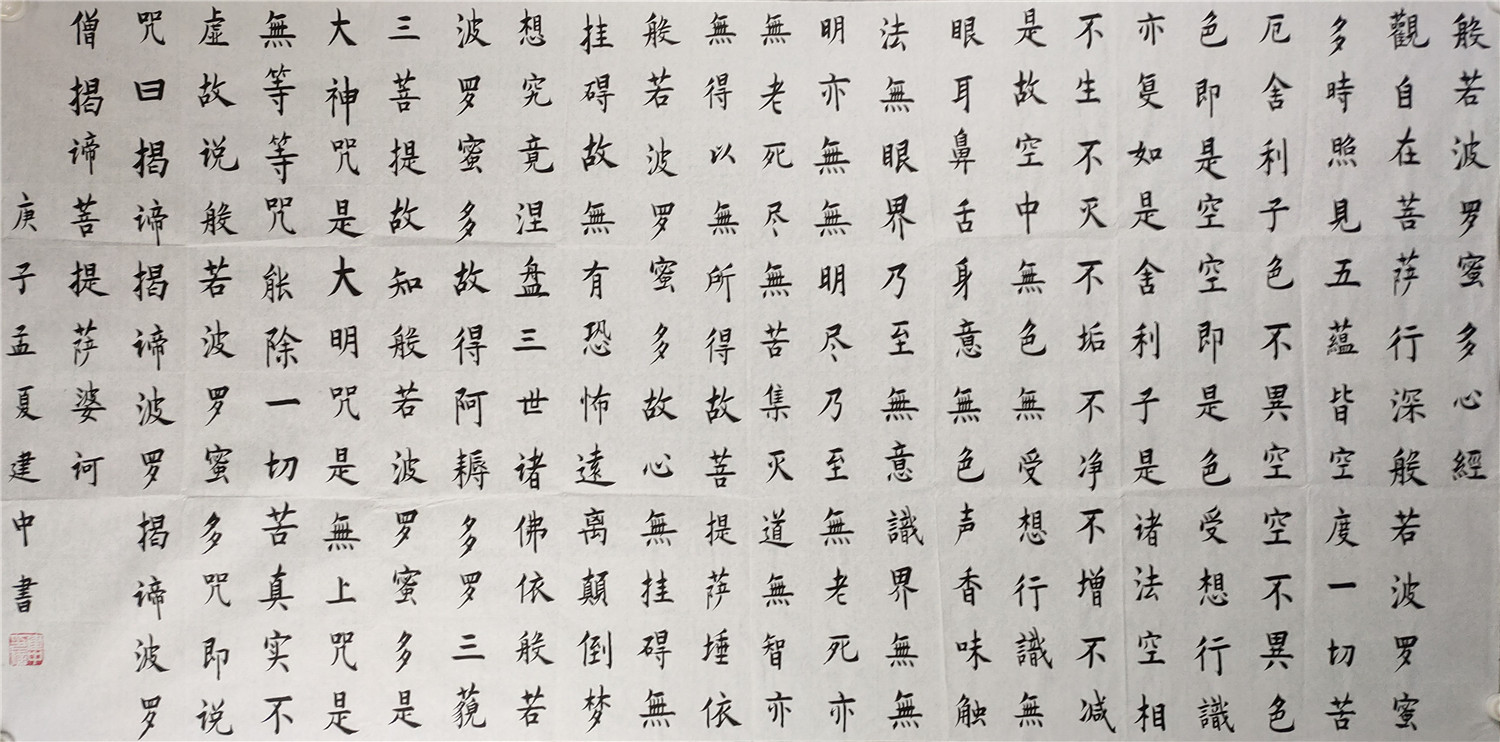 般若波罗蜜多心經
觀自在菩萨行深般若波罗蜜
多時照見五蘊皆空度一切苦
厄舍利子色不異空空不異色
色即是空空即是色受想行識
亦复如是舍利子是诸法空相
不生不灭不垢不净不增不减
是故空中無色無受想行識無
眼耳鼻舌身意無色声香味触
法無眼界乃至無意識界無無
明亦無無明尽乃至無老死亦
無老死尽無苦集灭道無智亦
無得以無所得故菩提萨埵依
般若波罗蜜多故心無挂碍無
挂碍故無有恐怖遠离顛倒梦
想究竟涅盘三世诸佛依般若
波罗蜜多故得阿耨多罗三藐
三菩提故知般若波罗蜜多是
大神咒是大明咒是無上咒是
無等等咒能除一切苦真实不
虚故说般若波罗蜜多咒即说
咒曰揭谛揭谛波罗揭谛波罗
僧揭谛菩提萨婆诃
庚子孟夏建中書